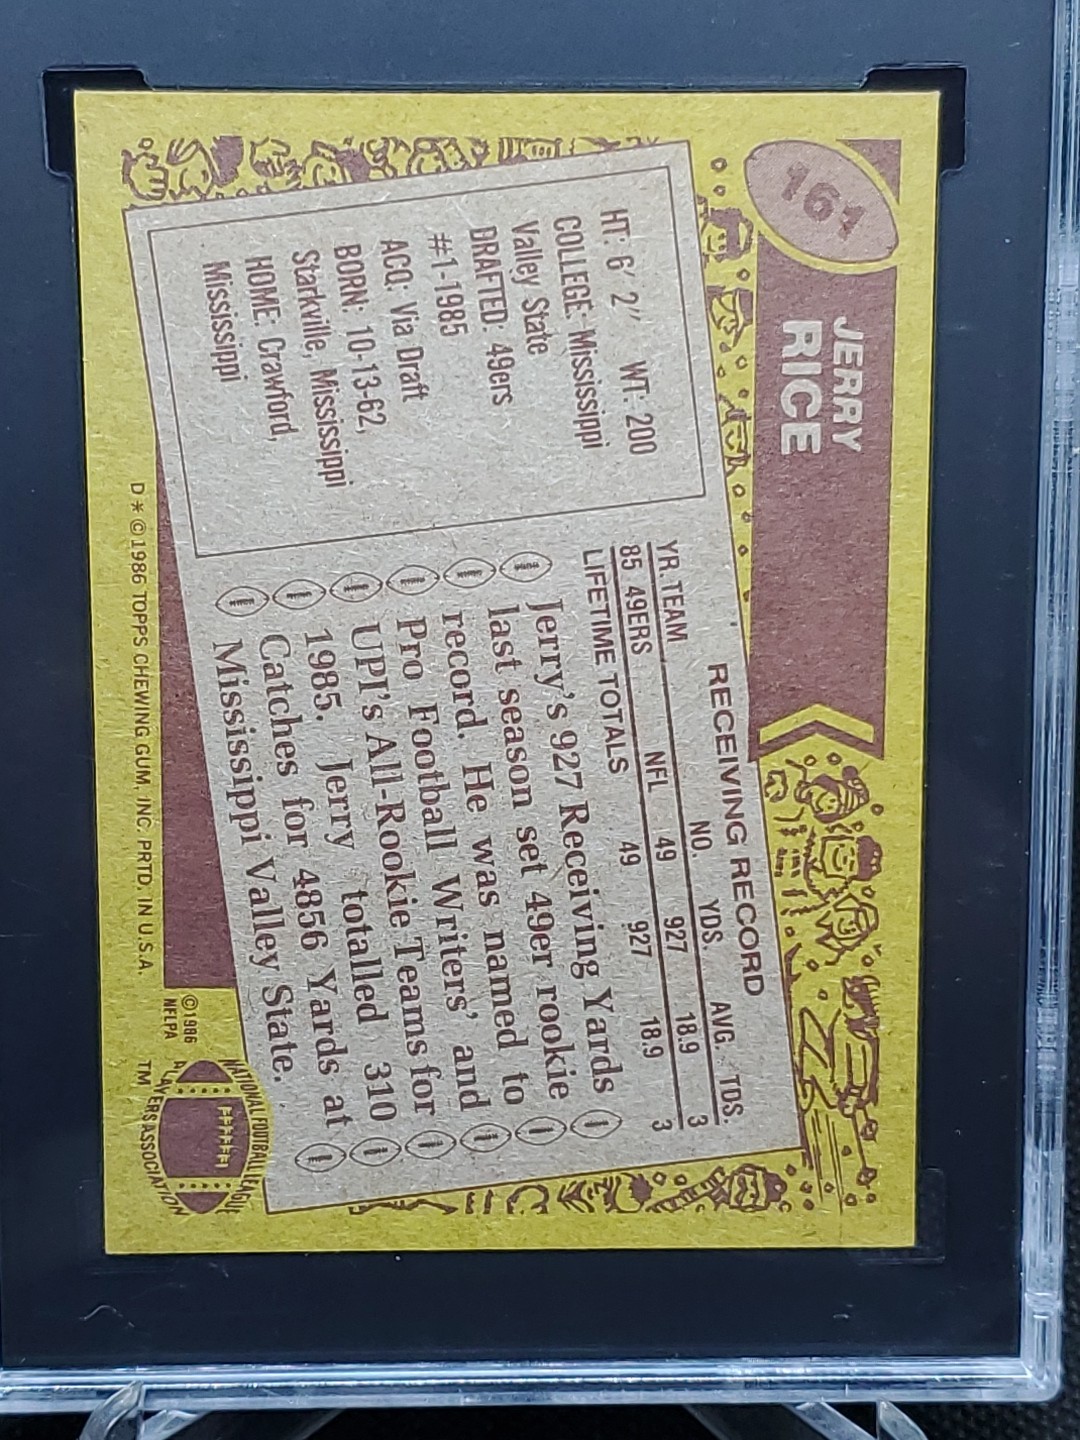 161
JERRY
RICE
HT: 6' 2" WT: 200
COLLEGE: Mississippi
Valley State
DRAFTED: 49ers
#1-1985
ACQ: Via Draft
BORN: 10-13-62,
Starkville, Mississippi
HOME: Crawford,
Mississippi
RECEIVING RECORD
YR. TEAM NO. YDS. AVG. TDS.
85 49ERS NFL 49 927 18.9 3
LIFETIME TOTALS 49 927 18.9 3
Jerry's 927 Receiving Yards
last season set 49er rookie
record. He was named to
Pro Football Writers' and
UPI's All-Rookie Teams for
1985. Jerry totalled 310
Catches for 4856 Yards at
Mississippi Valley State.
D*©1986 TOPPS CHEWING GUM, INC. PRTD. IN U.S.A.
©1986
NFLPA
NATIONAL FOOTBALL LEAGUE
PLAYERS ASSOCIATION
TM